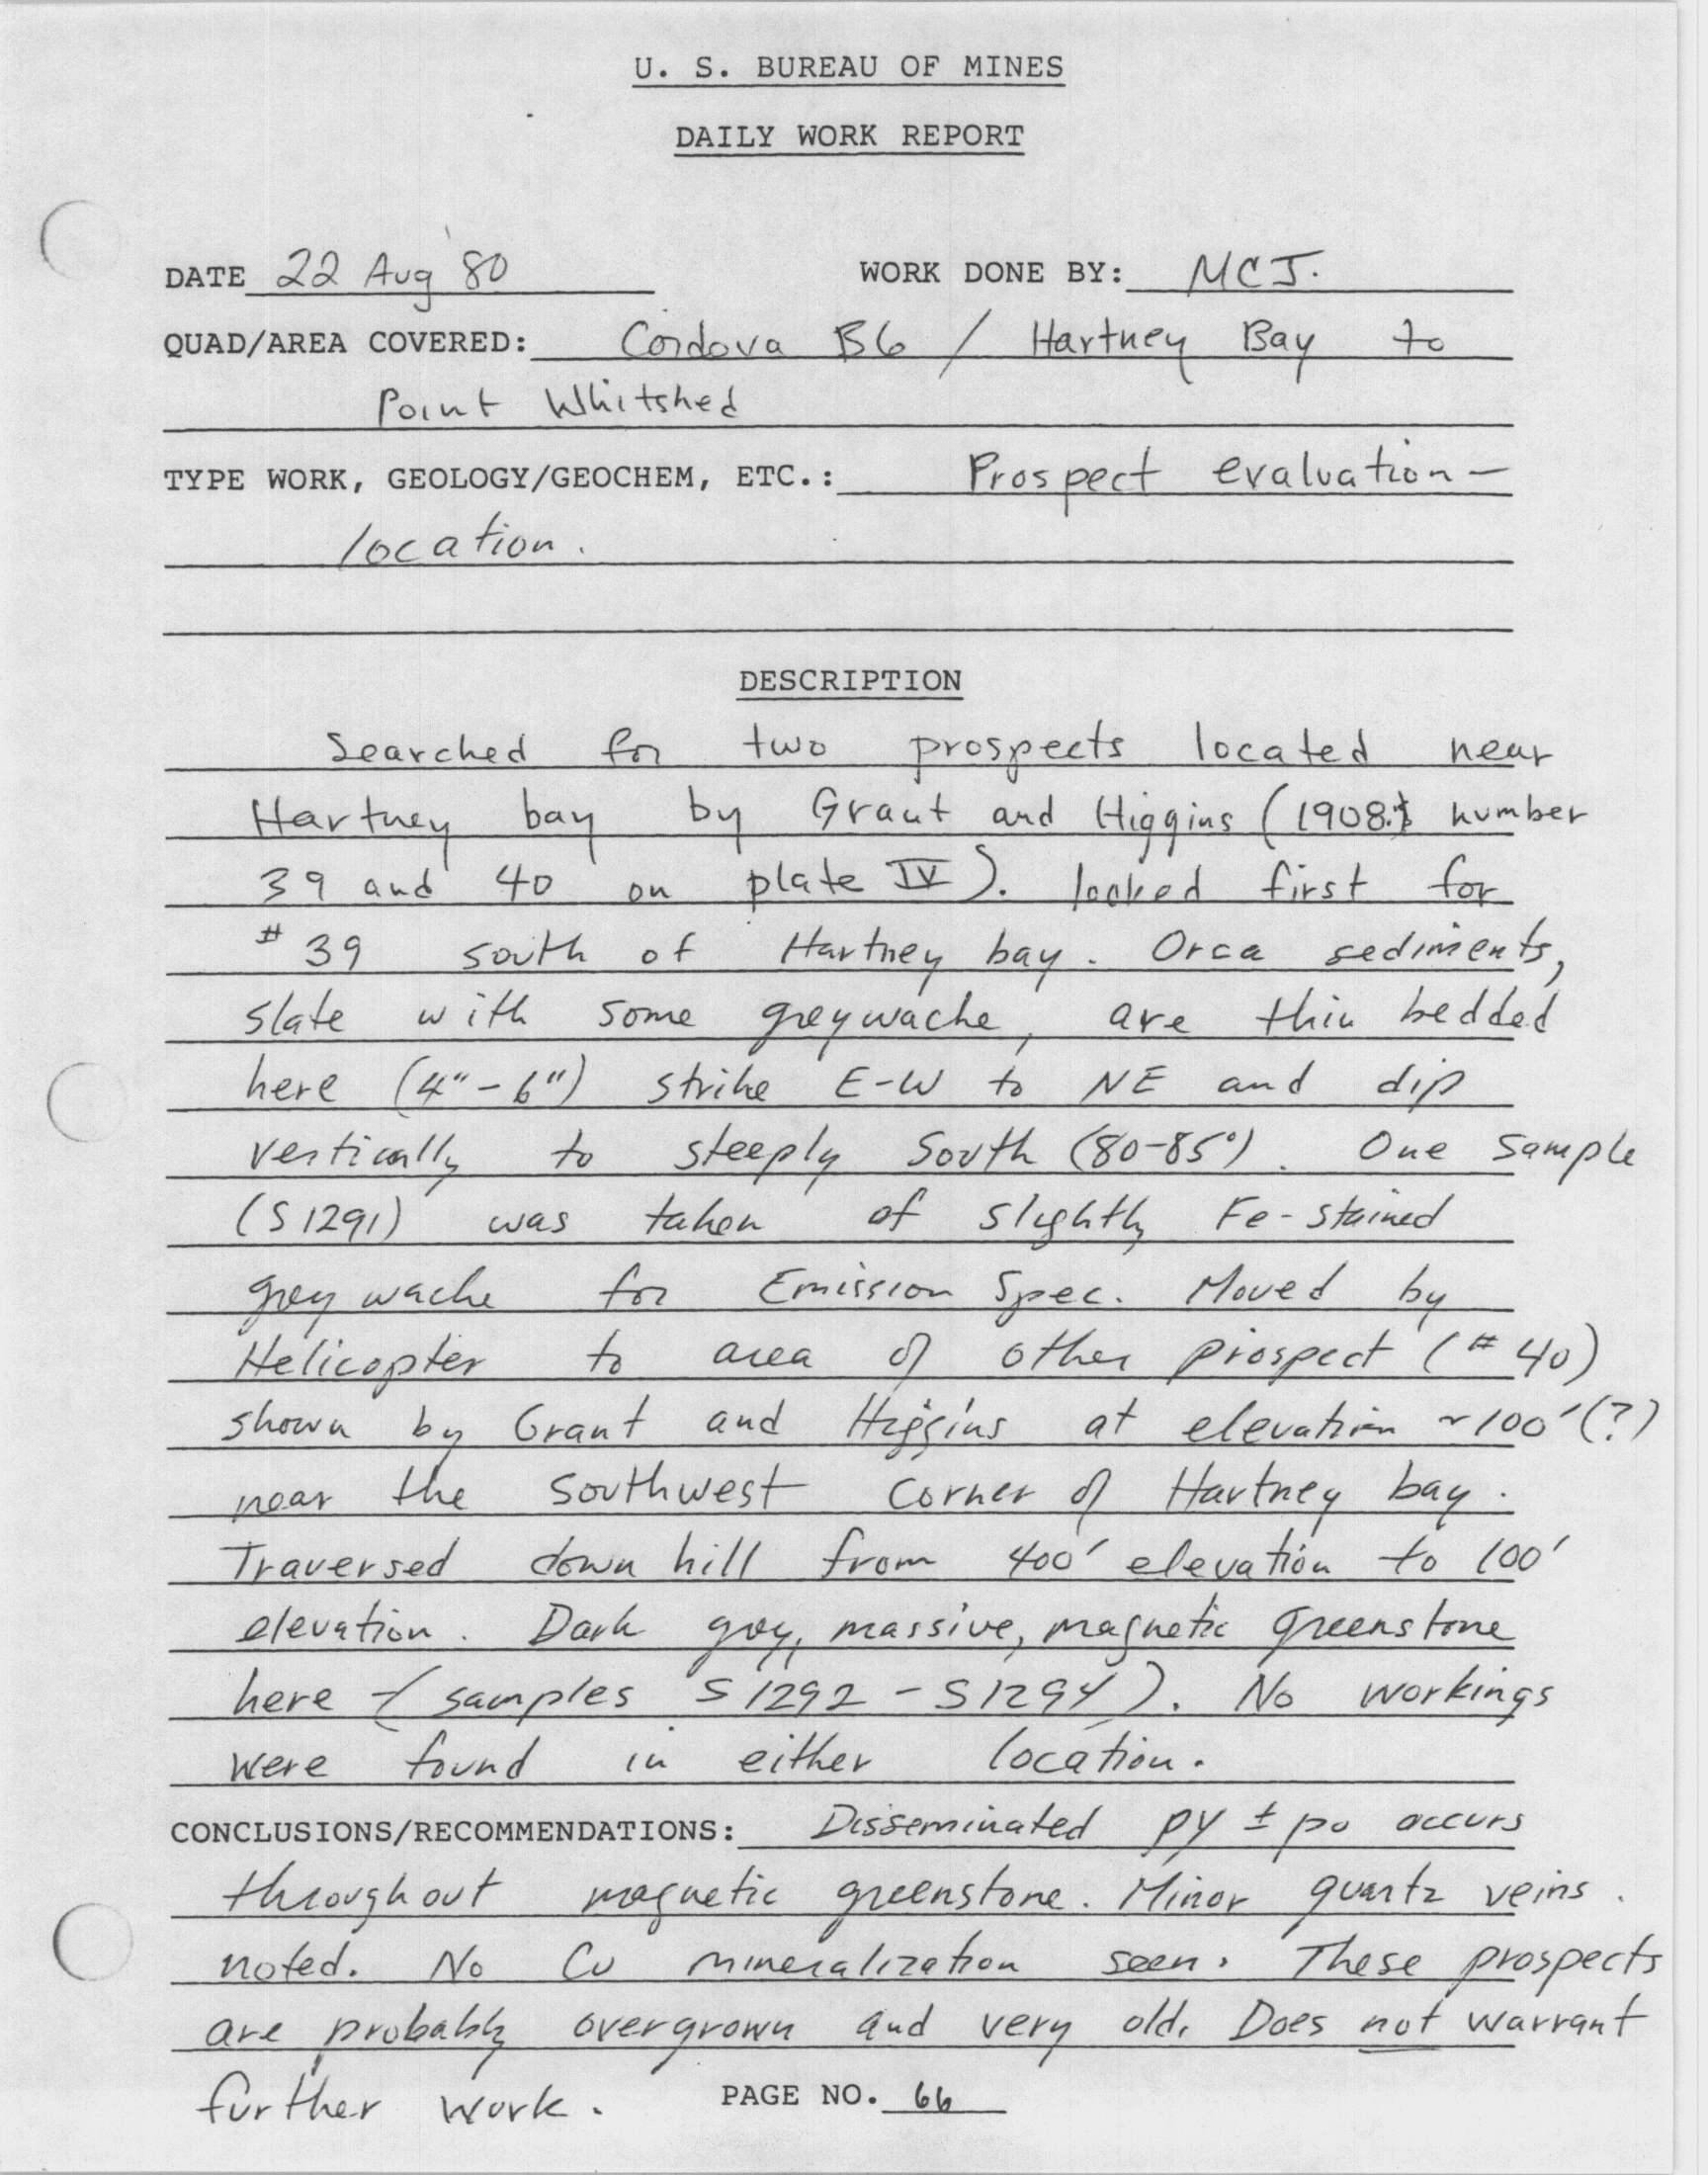 U. S. BUREAU OF MINES
DAILY WORK REPORT
DATE 22 Aug '80 WORK DONE BY: MCJ.
QUAD/AREA COVERED: Cordova B6 / Hartney Bay to
Point Whitshed
TYPE WORK, GEOLOGY/GEOCHEM, ETC.: Prospect evaluation—
location.
DESCRIPTION
Searched for two prospects located near
Hartney bay by Grant and Higgins (1908; number
39 and 40 on plate IV). looked first for
#39 south of Hartney bay. Orca sediments,
slate with some greywacke, are thin bedded
here (4"-6") strike E-W to NE and dip
vertically to steeply South (80-85°). One sample
(S1291) was taken of slightly Fe-stained
grey wacke for Emission Spec. Moved by
Helicopter to area of other prospect (#40)
shown by Grant and Higgins at elevation ~100'(?)
near the southwest corner of Hartney bay.
Traversed down hill from 400' elevation to 100'
elevation. Dark grey, massive, magnetic greenstone
here (samples S1292-S1294). No workings
were found in either location.
CONCLUSIONS/RECOMMENDATIONS: Disseminated py ± po occurs
throughout magnetic greenstone. Minor quartz veins.
noted. No Cu mineralization seen. These prospects
are probably overgrown and very old. Does not warrant
further work. PAGE NO. 66